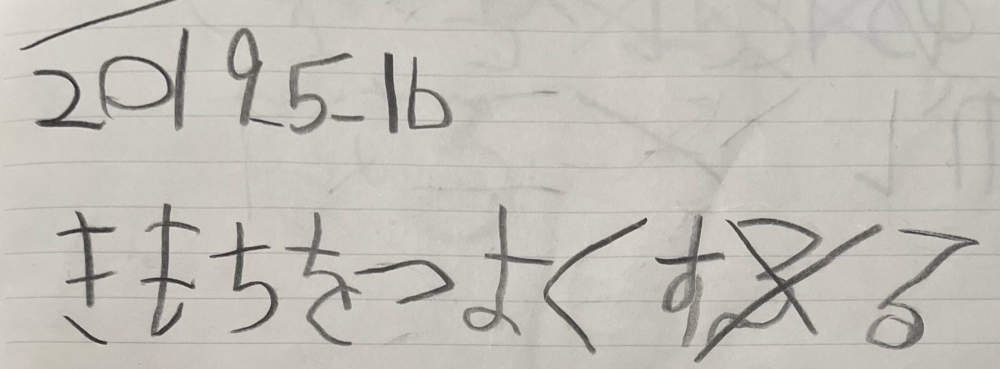 2019.5.16
きもちをつよくする